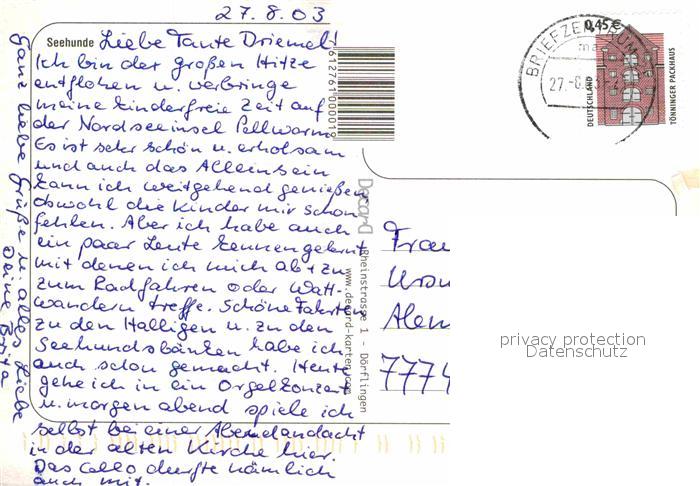 27.8.03
Seehunde
Liebe Tante Driemel!
Ich bin der großen Hitze
entflohen u. verbringe
meine kinderfreie Zeit auf
der Nordseeinsel Pellworm.
Es ist sehr schön u. erholsam
und auch das Alleinsein
kann ich weitgehend genießen,
obwohl die Kinder mir schon
fehlen. Aber ich habe auch
ein paar Leute kennengelernt
mit denen ich mich ab + zu
zum Radfahren oder Watt-
wandern treffe. Schöne Fahrten
zu den Halligen u. zu den
Seehundsbänken habe ich
auch schon gemacht. Heute
gehe ich in ein Orgelkonzert
u. morgen abend spiele ich
selbst bei einer Abendandacht
in der alten Kirche hier.
Das Cello durfte nämlich
auch mit.
Ganz liebe Grüße u. alles Liebe
Deine Brita
Decard
Rheinstrasse 1 - Dörflingen
www.decard-karten.com
BRIEFZENTRUM
27.-8.
0,45€
DEUTSCHLAND
TÖNNINGER PACKHAUS
Frau
7774
privacy protection
Datenschutz